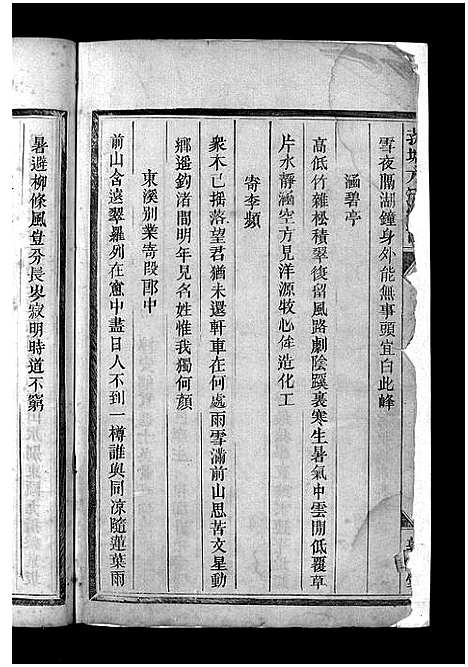 雪夜隔湖鐘身外能無事頭宜白此峰
涵碧亭
高低竹雜松積翠復留風路劇陰蹊裏寒生暑氣中雲閒低覆草
片水靜涵空方見洋源牧心侔造化工
寄李頻
衆木已搖落望君猶未還軒車在何處雨雪滿前山思苦文星動
鄉遥釣渚間明年見名姓惟我獨何顔
東溪別業寄段郎中
前山含遠翠羅列在窻中盡日人不到一樽誰與同凉隨蓮葉雨
暑避柳條風豈分長岑寂明時道不窮